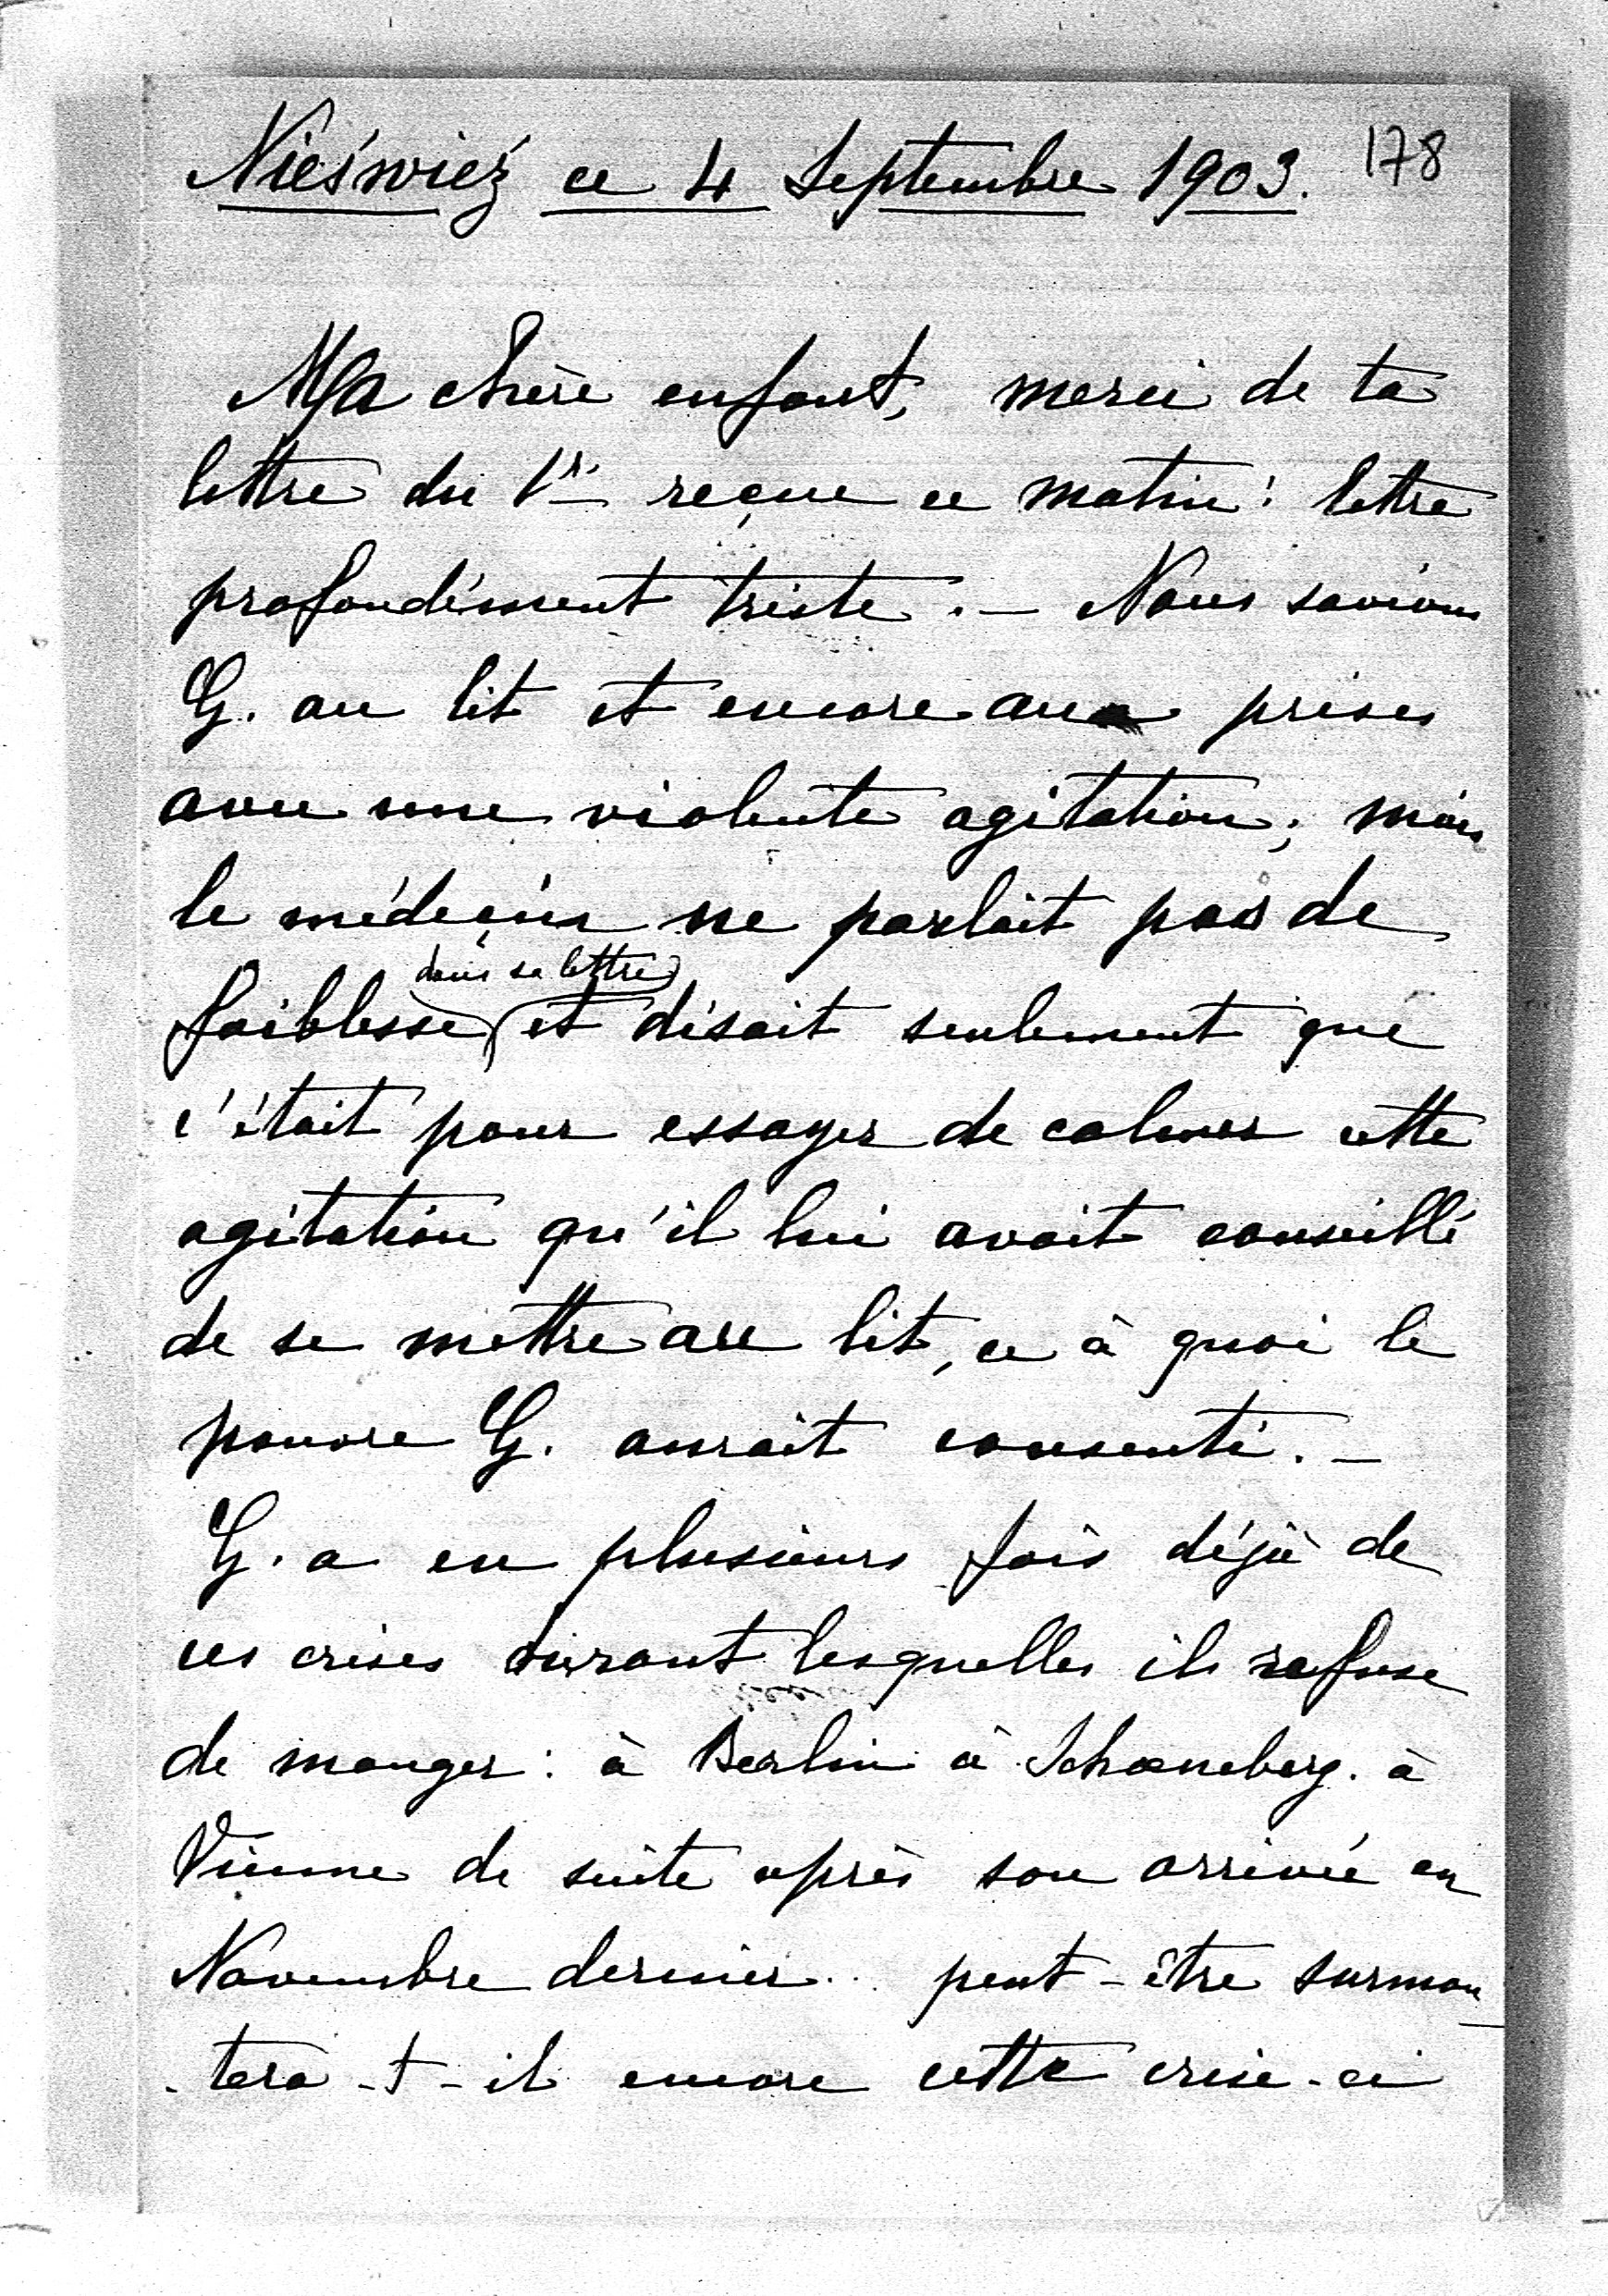 Nieświeź ce 4 Septembre 1903. 178
Ma chère enfant, merci de ta
lettre du 1r reçue ce matin: lettre
profondément triste. — Nous savions
G. au lit et encore aux prises
avec une violente agitation; mais
le médecin ne parlait pas de
dans sa lettre
faiblesse et disait seulement que
c'était pour essayer de calmer cette
agitation qu'il lui avait conseillé
de se mettre au lit, ce à quoi le
pauvre G. aurait consenti. —
G. a eu plusieurs fois déjà de
ces crises durant lesquelles il refuse
de manger: à Berlin à Schoeneberg. à
Vienne de suite après son arrivée en
Novembre dernier.. peut-être surmon
-tera-t-il encore cette crise-ci